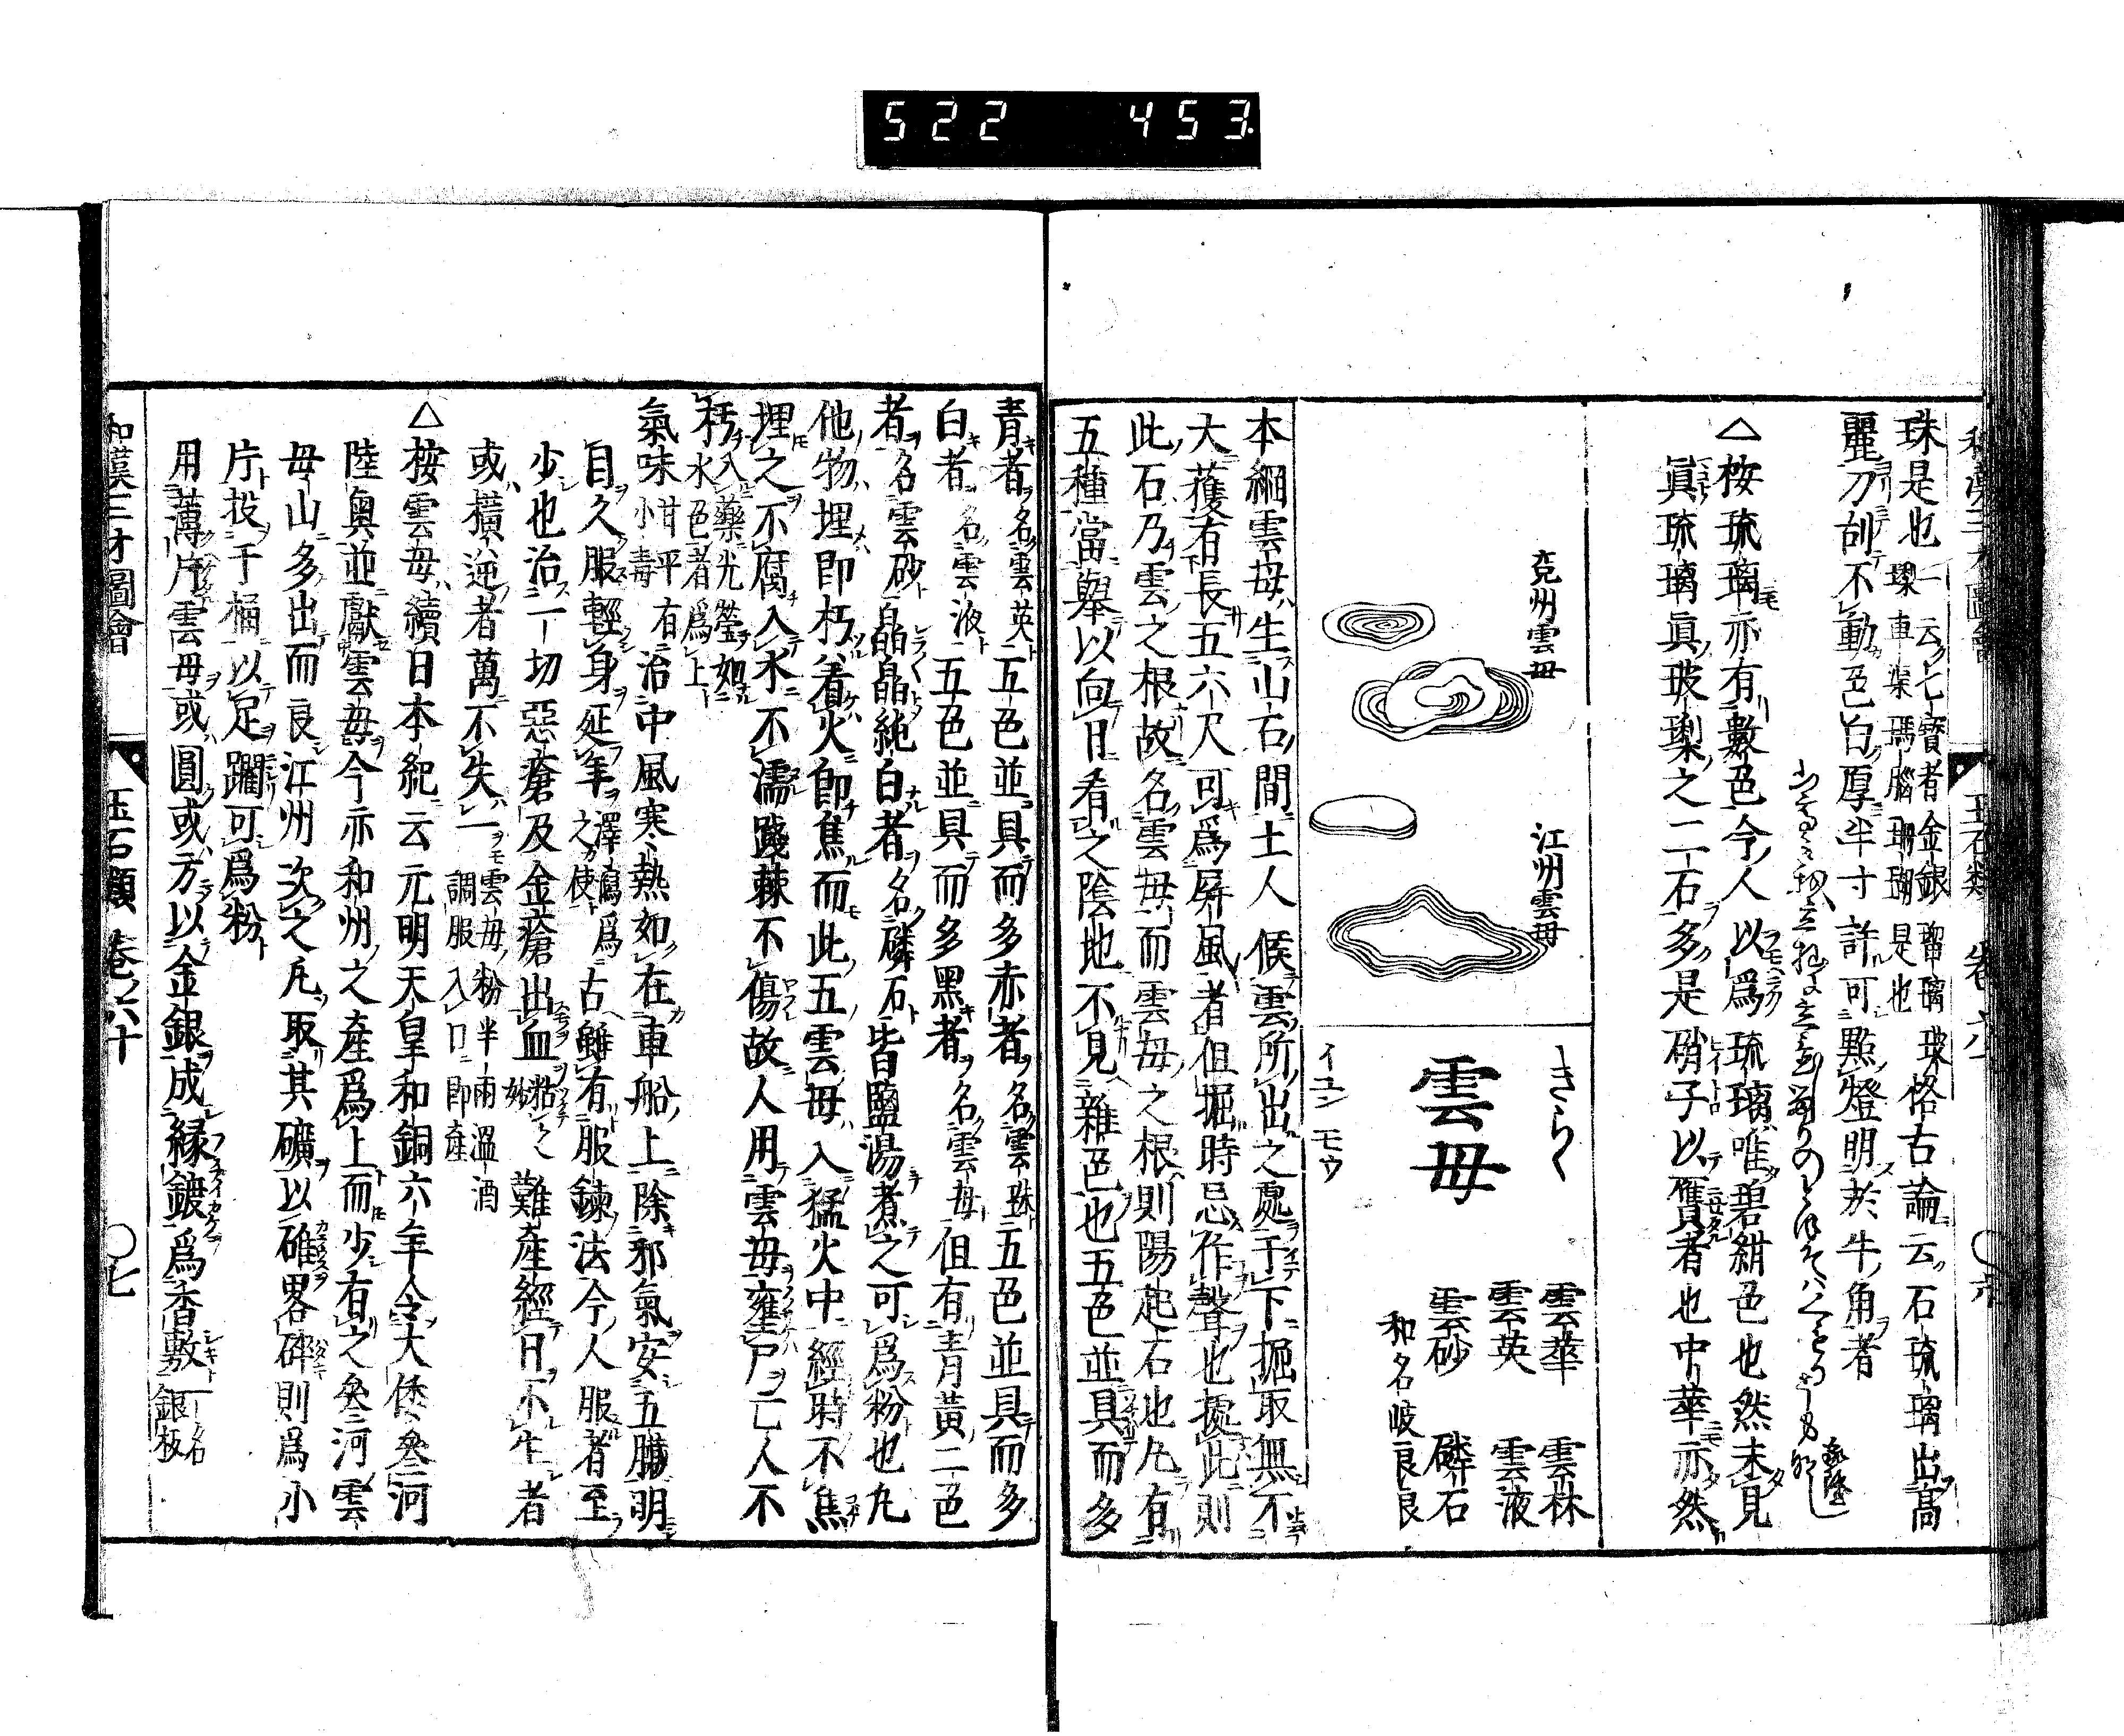 522 453.
玉石類 卷六十
珠是也 一云七寶者金銀瑠璃玻瓈車渠瑪腦珊瑚是也 格古論云石琉璃出高
麗刀刮不動色白厚半寸許可點燈明於牛角者
△桉琉璃亦有數色今人以爲琉璃唯碧紺色也然未見
眞琉璃眞玻瓈之二石多是硝子以贋者也中華亦然
兗州雲母
江州雲母
きらゝ
雲母
イユン モウ
雲華 雲林
雲英 雲液
雲砂 磷石
和名岐良良
本綱雲母生山石間土人候雲所出之處于下掘取無不
大獲有長五六尺可爲屏風者但掘時忌作聲也據此則
此石乃雲之根故名雲母而雲母之根則陽起石也凡有
五種當舉以向日看之陰地不見雜色也五色並具而多
青者名雲英五色並具而多赤者名雲珠五色並具而多
白者名雲液五色並具而多黑者名雲母但有青黃二色
者名雲砂皛皛純白者名磷石皆鹽湯煮之可爲粉也凡
他物埋即朽着火即焦而此五雲母入猛火中經時不焦
埋之不腐入水不濡踐棘不傷故人用雲母壅尸亡人不
朽 入藥光瑩如水色者爲上
氣味 甘平有小毒 治中風寒熱如在車船上除邪氣安五臟明
目久服輕身延年 澤瀉爲之使 古雖有服鍊法今人服者至
少也治一切惡瘡及金瘡出血 粘之妙 難產經日不生者
或橫逆者萬不失一 雲母粉半兩溫酒調服入口即產
△桉雲母續日本紀云元明天皇和銅六年令大倭叅河
陸奥並獻雲母今亦和州之産爲上而少有之叅河雲
母山多出而良江州次之凡取其礦以碓畧碎則爲小
片投于桶以足躙可爲粉
用薄片雲母或圓或方以金銀成緣鍍爲香敷 一名銀板
和漢三才圖會 玉石類 卷六十 〇七